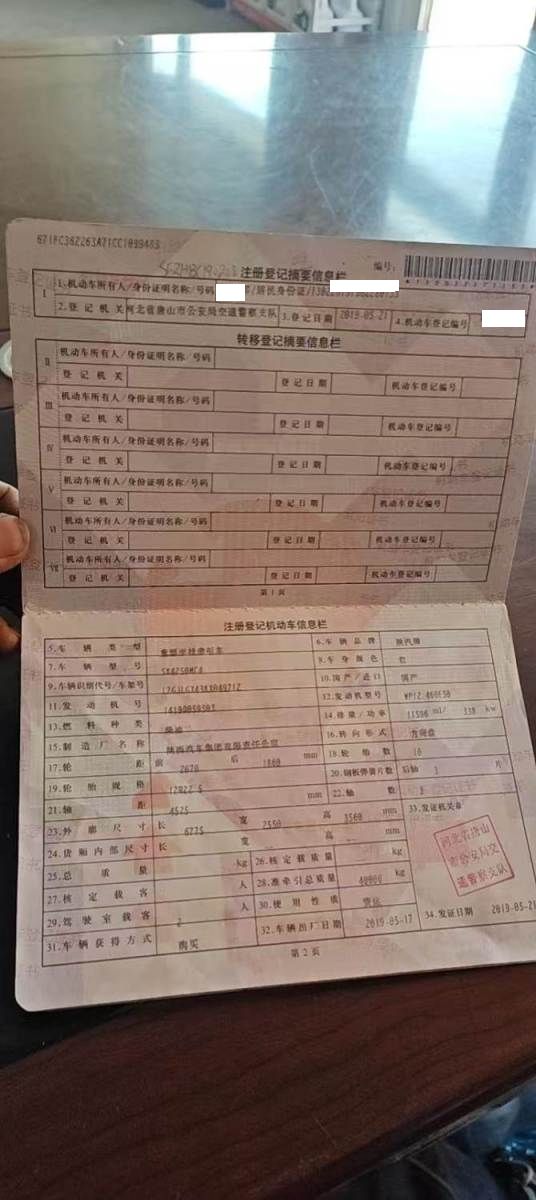 编号:
注册登记摘要信息栏
I 1.机动车所有人/身份证明名称/号码 /居民身份证/
2.登记机关 河北省唐山市公安局交通警察支队 3.登记日期 2019-05-21 4.机动车登记编号
转移登记摘要信息栏
II 机动车所有人/身份证明名称/号码
登记机关 登记日期 机动车登记编号
III 机动车所有人/身份证明名称/号码
登记机关 登记日期 机动车登记编号
IV 机动车所有人/身份证明名称/号码
登记机关 登记日期 机动车登记编号
V 机动车所有人/身份证明名称/号码
登记机关 登记日期 机动车登记编号
VI 机动车所有人/身份证明名称/号码
登记机关 登记日期 机动车登记编号
VII 机动车所有人/身份证明名称/号码
登记机关 登记日期 机动车登记编号
第1页
注册登记机动车信息栏
5.车辆类型 重型半挂牵引车 6.车辆品牌
7.车辆型号 8.车身颜色
9.车辆识别代号/车架号 10.国产/进口 国产
11.发动机号 12.发动机型号
13.燃料种类 柴油 14.排量/功率 11596 ml/ 338 kw
15.制造厂名称 陕西汽车集团有限责任公司 16.转向形式 方向盘
17.轮距 前 2020 后 1860 mm 18.轮胎数 10
19.轮胎规格 20.钢板弹簧片数 后轴 片
21.轴距 4575 mm 22.轴数 3
23.外廓尺寸 长 6775 宽 2550 高 3560 mm 33.发证机关章
24.货厢内部尺寸 长 宽 高 mm
25.总质量 kg 26.核定载质量 kg
27.核定载客 人 28.准牵引总质量 40000 kg
29.驾驶室载客 2 人 30.使用性质 货运
31.车辆获得方式 购买 32.车辆出厂日期 2019-05-17 34.发证日期 2019-05-21
河北省唐山
市公安局交
通警察支队
第2页